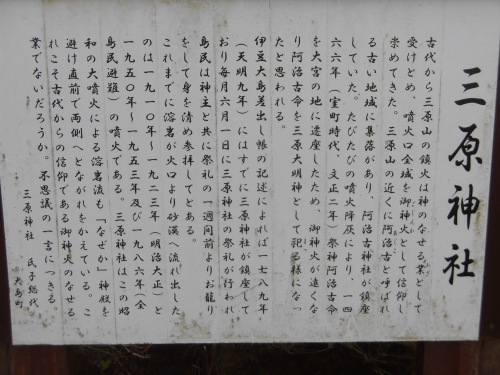 三原神社
古代から三原山の鎮火は神のなせる業として
受けとめ、噴火口全域を御神火として信仰し
崇めてきた。三原山の近くに阿治古と呼ばれ
る古い地域に集落があり、阿治古神社が鎮座
していた。たびたびの噴火降灰により、一四
六六年（室町時代、文正二年）祭神阿治古命
を大宮の地に遷座したため、御神火が遠くな
り阿治古命を三原大明神として祀る様になっ
たと思われる。
伊豆大島差出し帳の記述によれば一七八九年
（天明九年）にはすでに三原神社が鎮座して
おり毎月六月一日に三原神社の祭礼が行われ
島民は神主と共に祭礼の一週間前よりお籠り
をして身を清め参拝してとある。
これまでに溶岩が火口より砂漠へ流れ出した
のは一九一〇年～一九二三年（明治大正）と
一九五〇年～一九五三年及び一九八六年（全
島民避難）の噴火である。三原神社はこの昭
和の大噴火による溶岩流も「なぜか」神殿を
避け直前で両側へとながれをかえている。こ
れこそ古代からの信仰である御神火のなせる
業でないだろうか。不思議の一言につきる。
三原神社 氏子総代
大島町